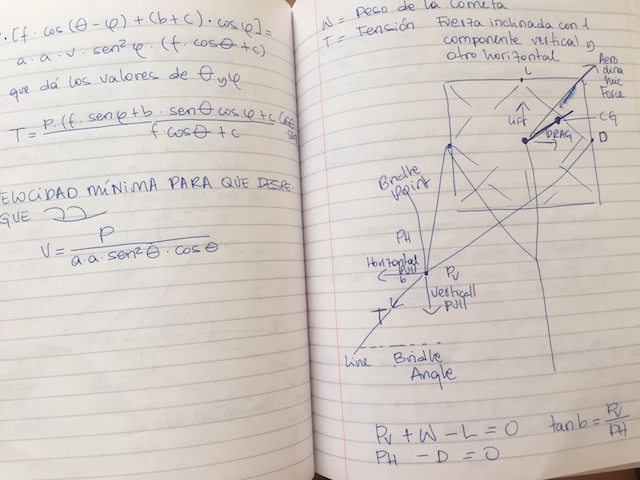 · [f · cos (θ - φ) + (b + c) · cos φ] =
a · a · v · sen² φ · (f · cos θ + c)
que dá los valores de θ y φ
T = P · (f · sen φ + b · sen θ cos φ + c
f · cos θ + c
ELOCIDAD MÍNIMA PARA QUE DESPE-
GUE
V = P
a · a · sen² θ · cos θ
W = Peso de la Cometa
T = Tensión Fuerza inclinada con 1
componente vertical y
otro horizontal
L
Aero
dina
mic
Force
Lift
CG
DRAG
D
Bridle
Point
PH
Horizontal
Pull
b
Pv
Verticall
Pull
T
Line
Bridle
Angle
Pv + W - L = 0
tan b = Pv
PH
PH - D = 0